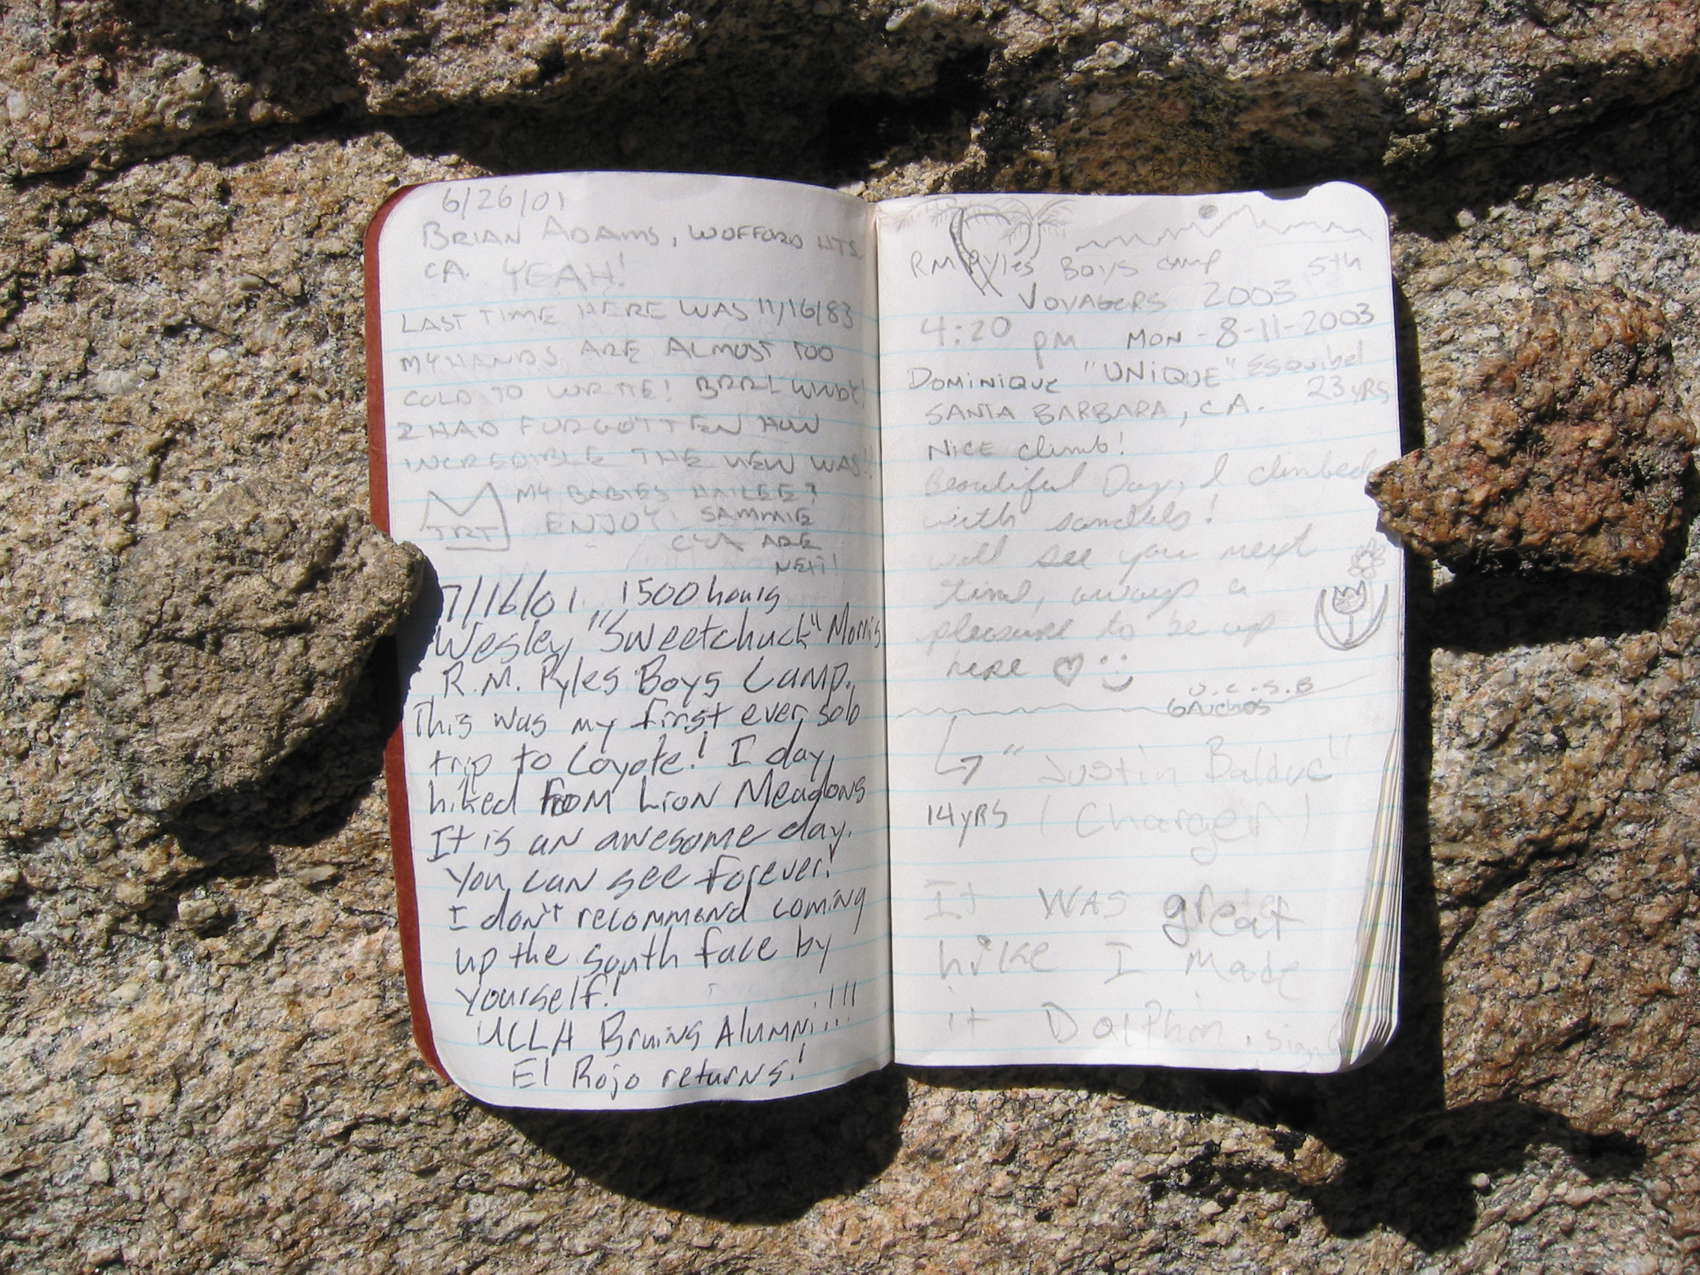 6/26/01
BRIAN ADAMS, WOFFORD HTS.
CA. YEAH!
LAST TIME HERE WAS 11/16/83
MY HANDS ARE ALMOST TOO
COLD TO WRITE! BRRR WINDY!
I HAD FORGOTTEN HOW
INCREDIBLE THE VIEW WAS!!
MY BABIES HAILEE &
ENJOY! SAMMIE
TRT
CYA ARE
NEXT!
7/16/01 1500 hours
Wesley "Sweetchuck" Morris
R.M. Pyles Boys Camp.
This was my first ever solo
trip to Coyote! I day
hiked from Lion Meadows
It is an awesome day.
You can see forever!
I don't recommend coming
up the south face by
yourself!
UCLA Bruins Alumni!!!
El Rojo returns!
RM Pyles Boys Camp 5th
Voyagers 2003
4:20 pm MON - 8-11-2003
Dominique "UNIQUE" Esquibel
23 yRS
SANTA BARBARA, CA.
NICE climb!
Beautiful Day, I climbed
with sandals!
will see you next
time, always a
pleasure to be up
here ♡ :)
U.C.S.B
GAUCHOS
"Justin Balduc"
14 yRS (Charger)
It was great
hike I made
it Dolphin.